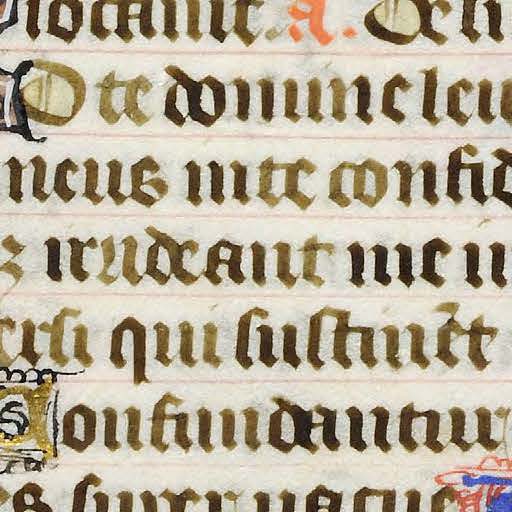 A. Deli
D te domine leu
meus in te confid
irrideant me in
ersi qui sustinēt
Confundantur
s superuacue